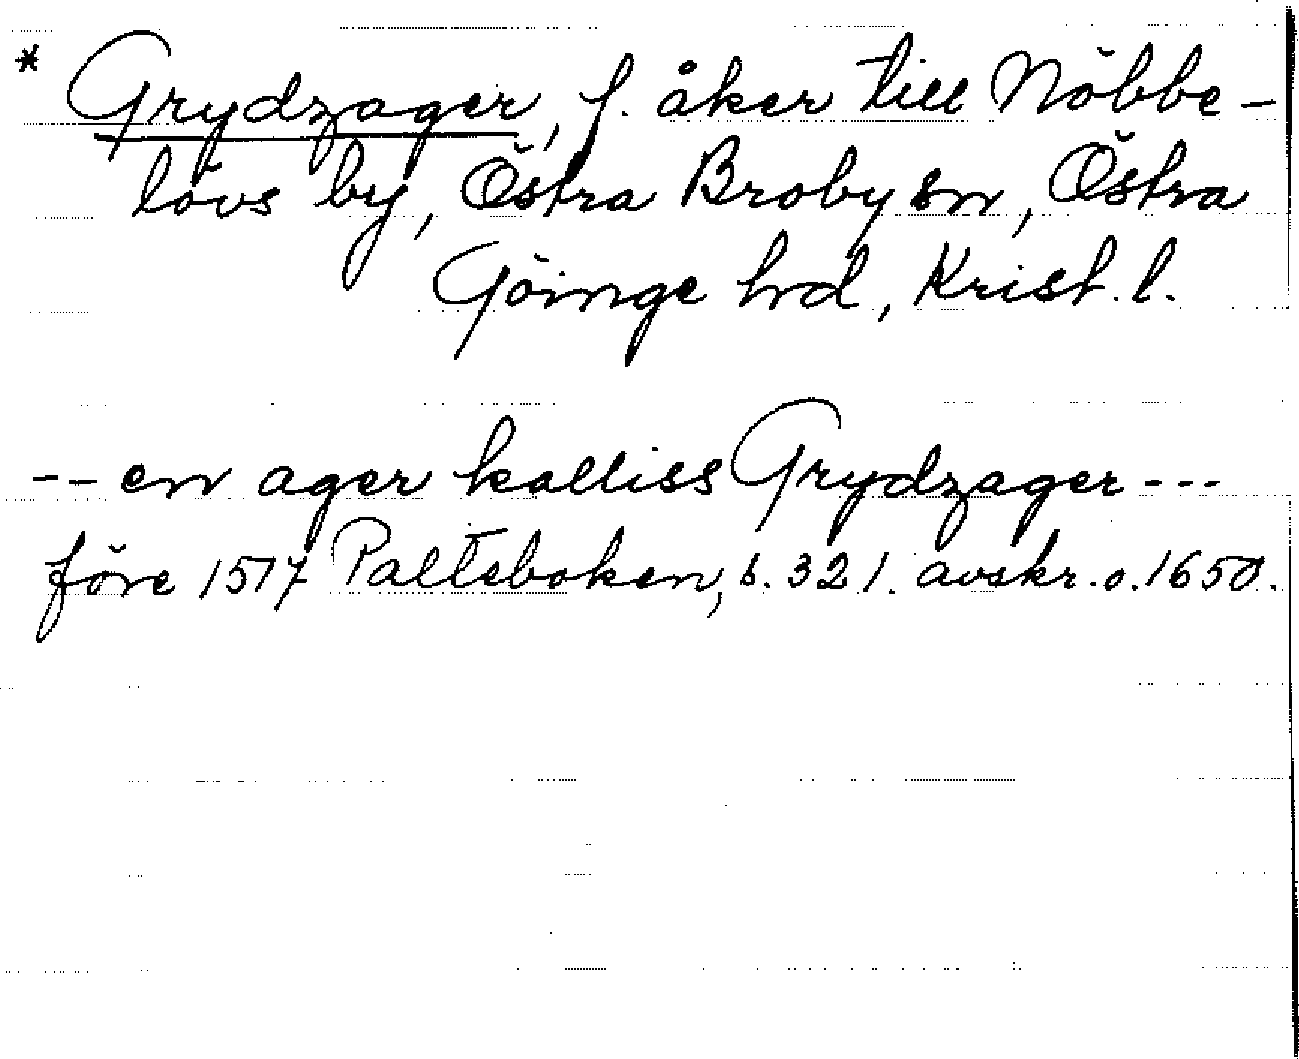 * Grydzager, f. åker till Nöbbe-
lövs by, Östra Broby sn, Östra
Göinge hrd, Krist. l.
-- en ager kalliss Grydzager ---
före 1517 Palteboken, s. 321. avskr. o. 1650.